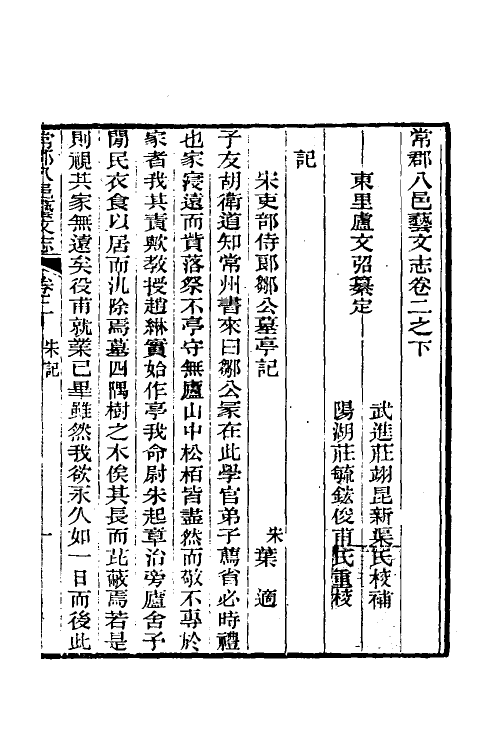 常郡八邑藝文志卷二之下
武進莊翊昆新渠氏校補
東里盧文弨纂定
陽湖莊毓鋐俊甫氏重校
記
宋吏部侍郞鄒公墓亭記
宋葉適
子友胡衛道知常州書來曰鄒公冡在此學官弟子薦省必時禮
也家寖遠而貲落祭不亭守無廬山中松栢皆盡然而敬不專於
家者我其責歟敎授趙綝實始作亭我命尉朱起章治旁廬舍予
閒民衣食以居而汎除焉墓四隅樹之木俟其長而芘蔽焉若是
則視其家無遠矣役甫就業已畢雖然我欲永久如一日而後此
常郡八邑藝文志
卷二下
朱記
一